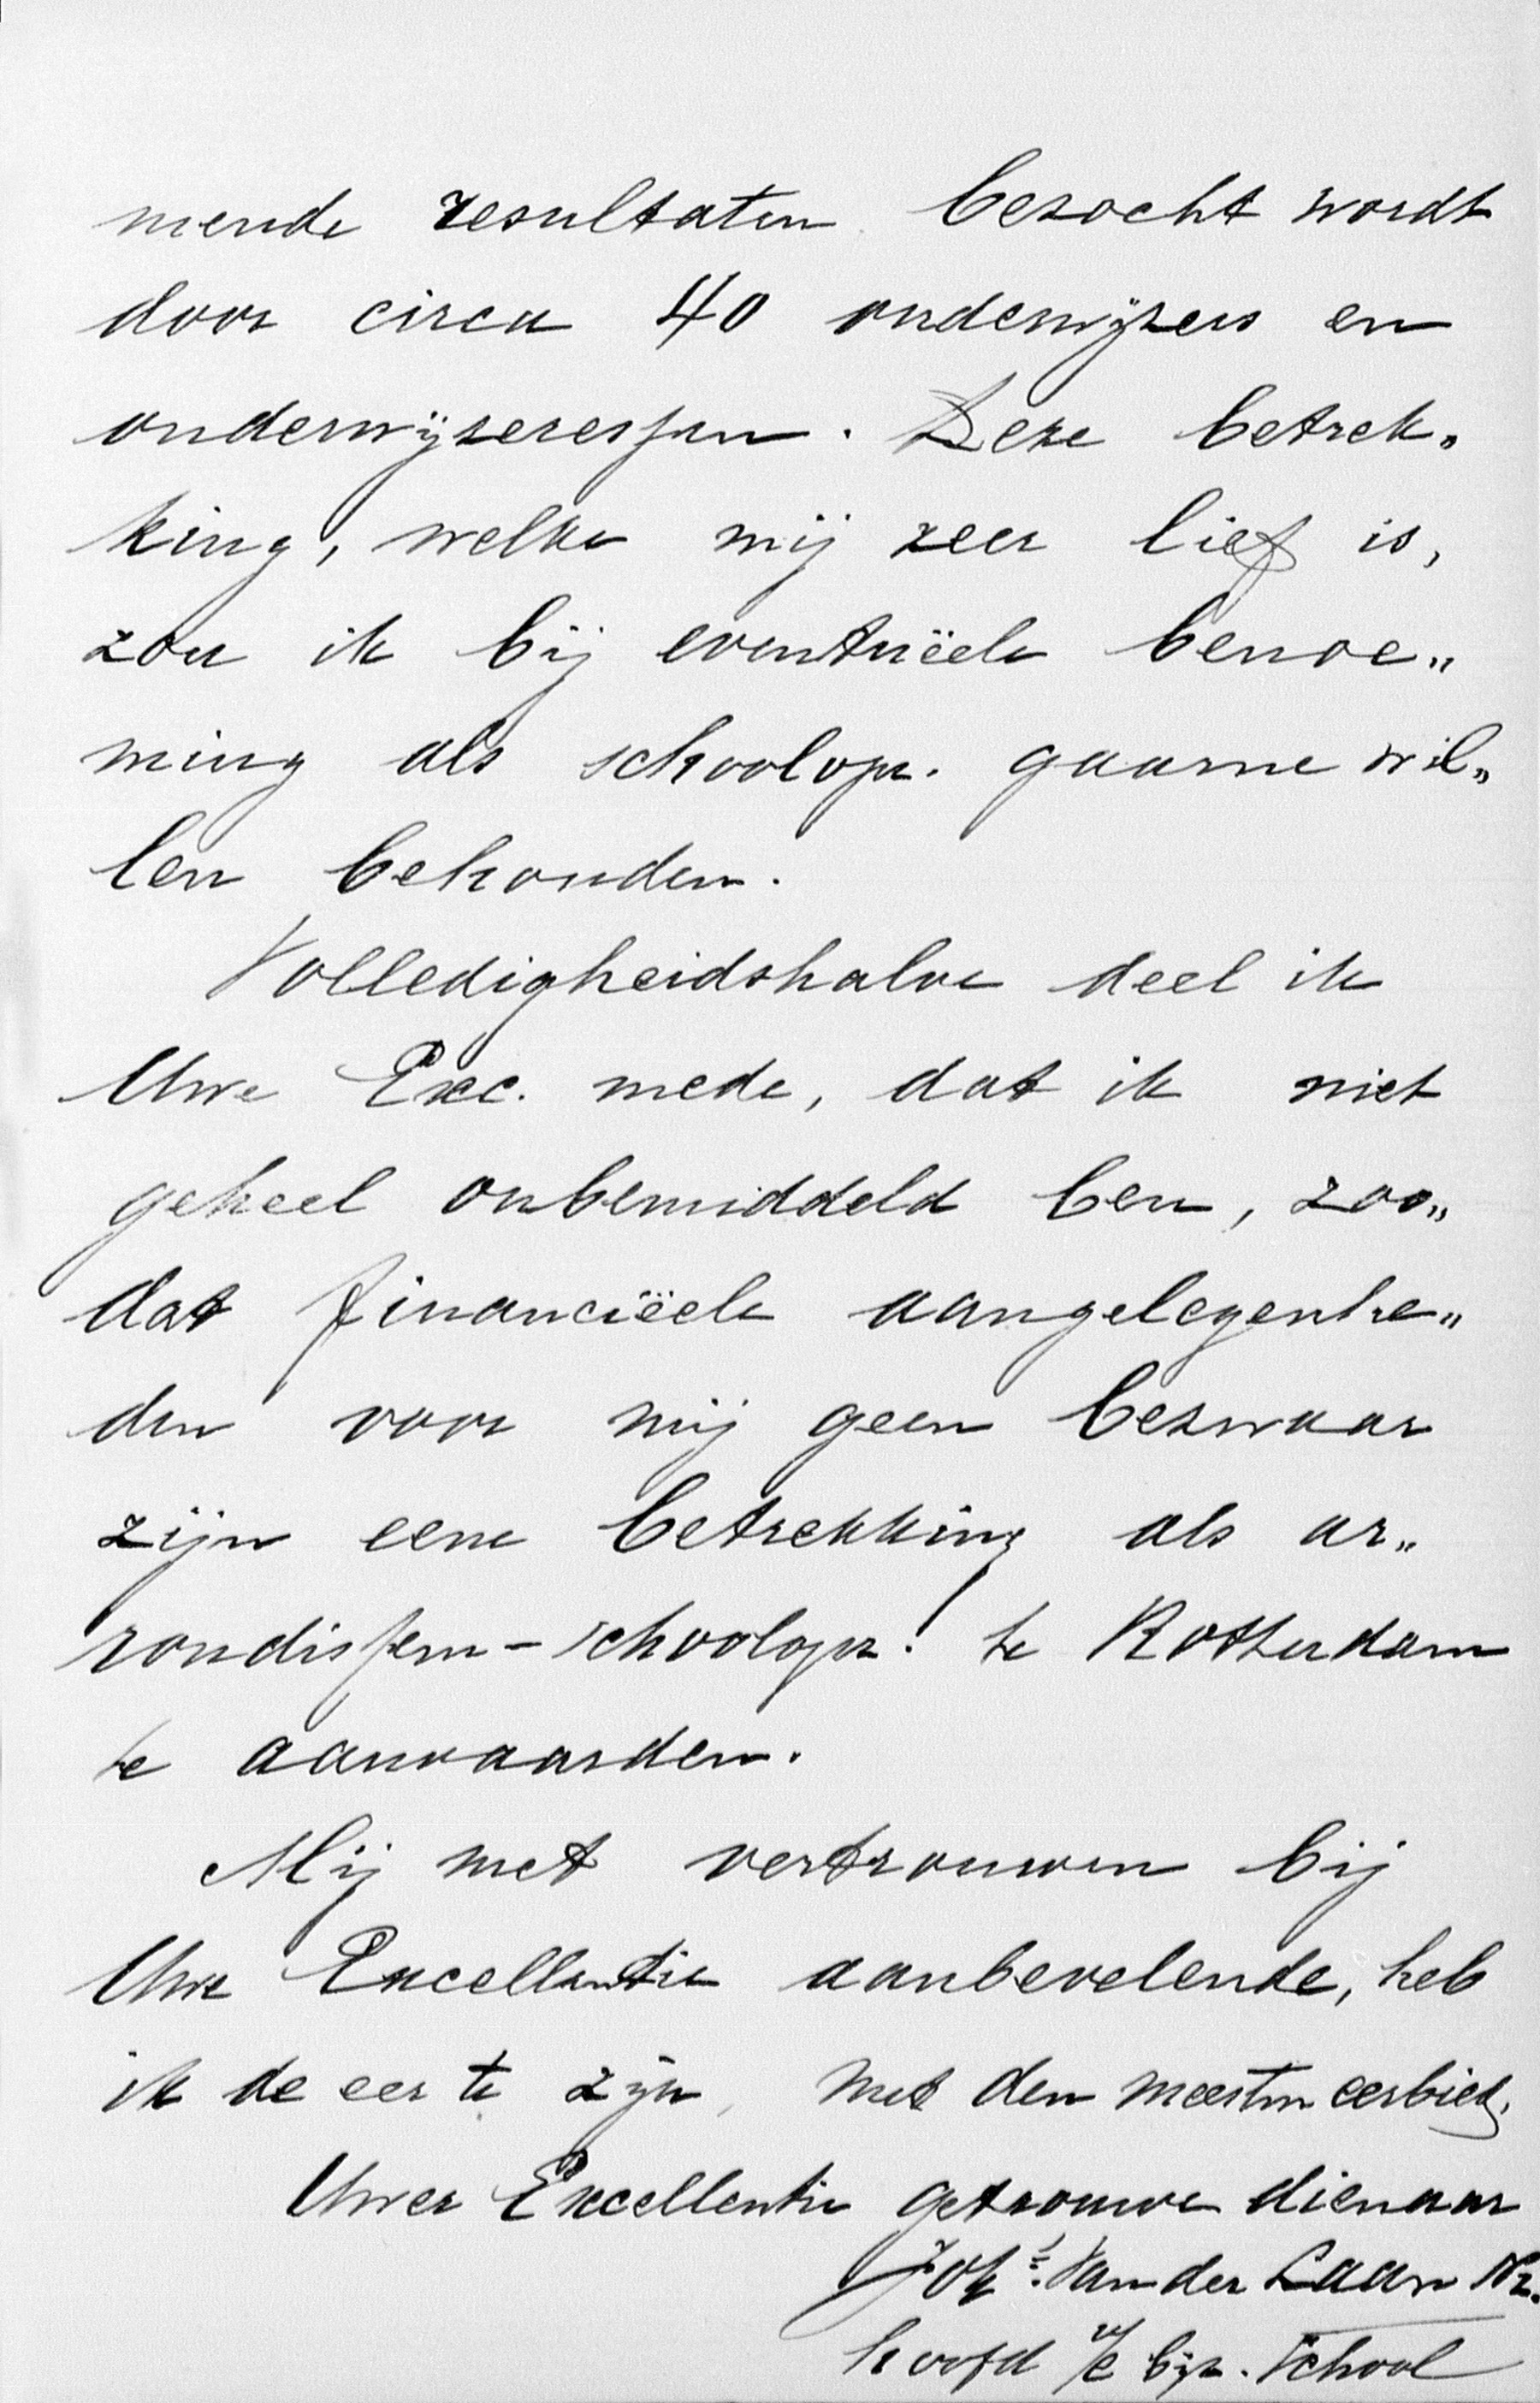 mende resultaten bezocht wordt
door circa 40 onderwijzers en
onderwijzeressen. Deze betrek„
king, welke mij zeer lief is,
zou ik bij eventuëele benoe„
ming als schoolopz. gaarne wil„
len behouden.
Volledigheidshalve deel ik
Uwe Exc. mede, dat ik niet
geheel onbemiddeld ben, zoo„
dat financiëele aangelegenhe„
den voor mij geen bezwaar
zijn eene betrekking als ar„
rondissem-schoolopz. te Rotterdam
te aanvaarden.
Mij met vertrouwen bij
Uwe Excellentie aanbevelende, heb
ik de eer te zijn, met den meesten eerbied,
Uwer Excellentie getrouwe dienaar
Johs. Van der Laan Nz.
hoofd v/e bijz. School